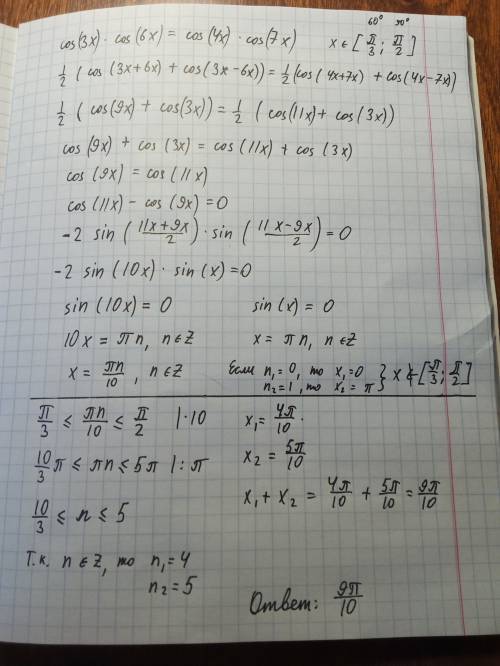 60° 90°
cos(3x)·cos(6x) = cos(4x)·cos(7x) x ∈ [π/3; π/2]
1/2 (cos(3x+6x) + cos(3x-6x)) = 1/2 (cos(4x+7x) + cos(4x-7x))
1/2 (cos(9x) + cos(3x)) = 1/2 (cos(11x) + cos(3x))
cos(9x) + cos(3x) = cos(11x) + cos(3x)
cos(9x) = cos(11x)
cos(11x) - cos(9x) = 0
-2 sin((11x+9x)/2)·sin((11x-9x)/2) = 0
-2 sin(10x)·sin(x) = 0
sin(10x) = 0 sin(x) = 0
10x = πn, n∈Z x = πn, n∈Z
x = πn/10, n∈Z Если n₁=0, то x₁=0
n₂=1, то x₂ = π } x ∉ [π/3; π/2]
π/3 ≤ πn/10 ≤ π/2 |·10
10/3 π ≤ πn ≤ 5π |:π
10/3 ≤ n ≤ 5
Т.к. n∈Z, то n₁=4
n₂=5
x₁ = 4π/10
x₂ = 5π/10
x₁ + x₂ = 4π/10 + 5π/10 = 9π/10
Ответ: 9π/10